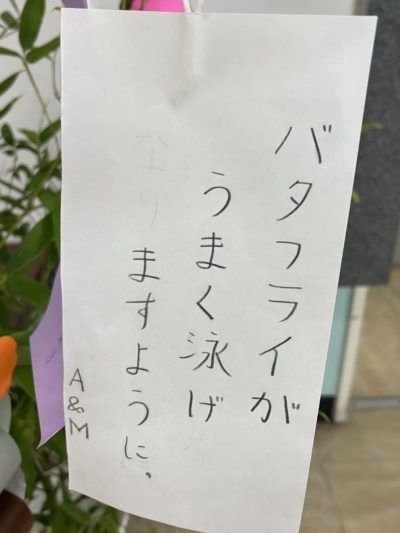 バタフライが
うまく泳げ
ますように、
A&M